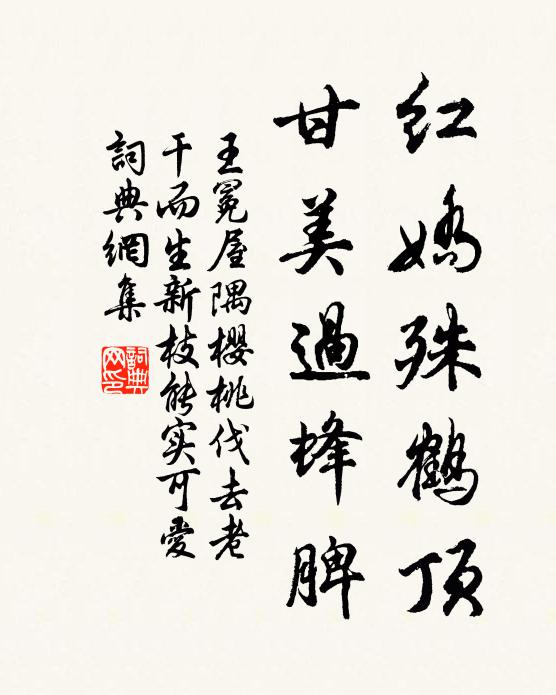 红娇殊鹤顶
甘美過蜂脾
王冕屋隅櫻桃伐去老
干而生新枝能实可愛
詞典網集
詞典
网印